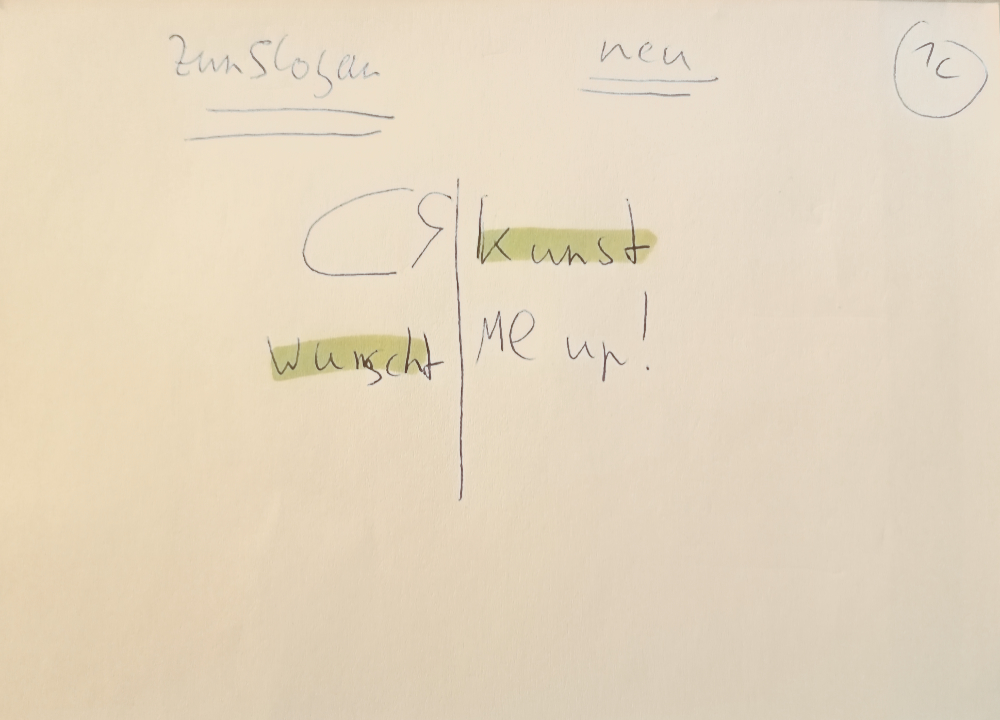 Zum Slogan neu 1c
Kunst
Wunscht Me up!